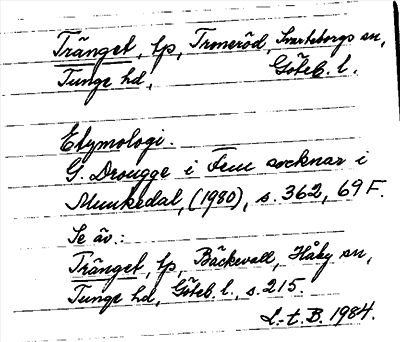 Trånget, tp, Tromeröd, Svarteborgs sn,
Tunge hd, Göteb. l.
Etymologi.
G. Drougge i Fem socknar i
Munkedal, (1980), s. 362, 69 F.
Se äv.:
Trånget, tp, Bäckevall, Håby sn,
Tunge hd, Göteb. l., s. 215.
L.-t. B. 1984.